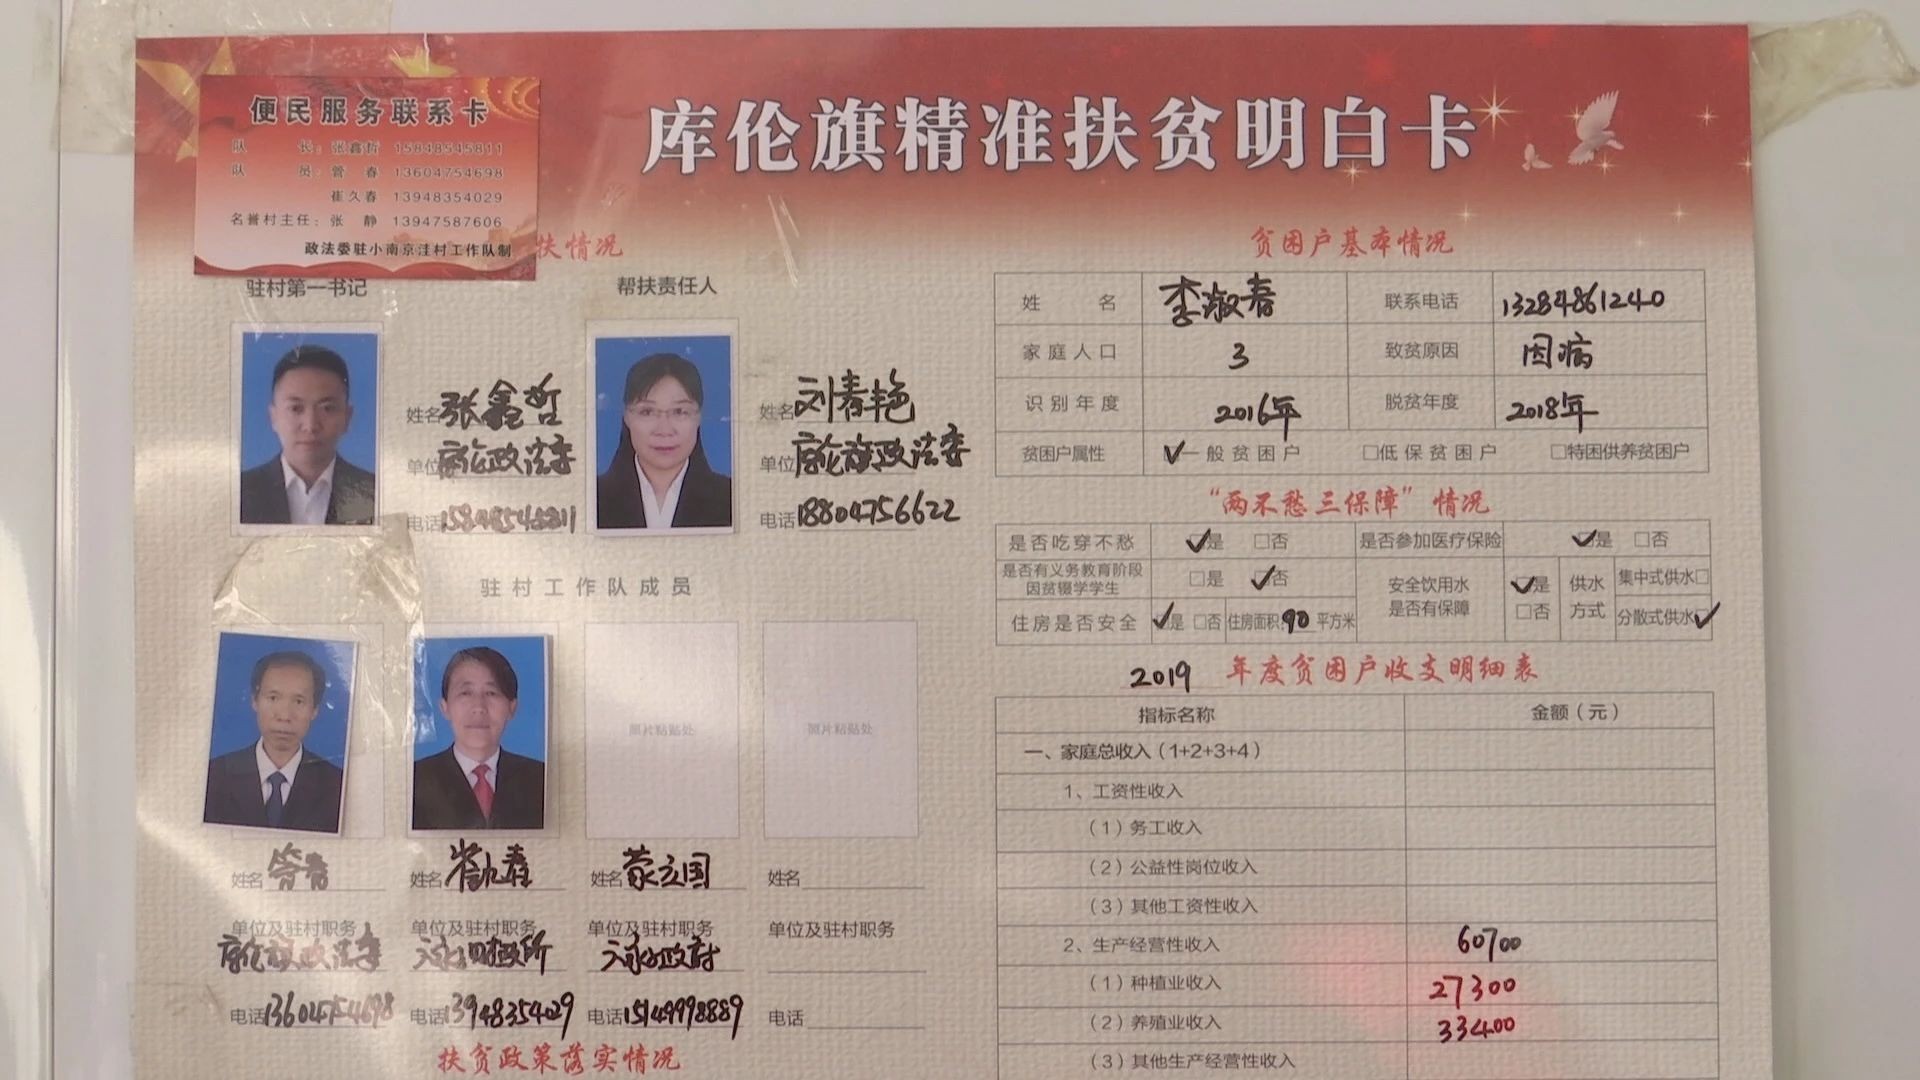 库伦旗精准扶贫明白卡
便民服务联系卡
队 长：张鑫哲 15848545811
队 员：管 春 13604754698
崔久春 13948354029
名誉村主任：张 静 13947587606
政法委驻小南京洼村工作队制
扶情况
驻村第一书记
帮扶责任人
姓名 张鑫哲
单位 库伦政法委
电话 15848545811
姓名 刘春艳
单位 库伦旗政法委
电话 18804756622
驻村工作队成员
照片粘贴处
照片粘贴处
姓名 管春
单位及驻村职务
库伦旗政法委
电话 13604754698
姓名 崔久春
单位及驻村职务
财政所
电话 13948354029
姓名 蒙立国
单位及驻村职务
政府
电话 15149998889
姓名
单位及驻村职务
电话
扶贫政策落实情况
贫困户基本情况
姓 名 李淑春 联系电话 13284861240
家庭人口 3 致贫原因 因病
识别年度 2016年 脱贫年度 2018年
贫困户属性 ✓一般贫困户 □低保贫困户 □特困供养贫困户
“两不愁三保障”情况
是否吃穿不愁 ✓是 □否 是否参加医疗保险 ✓是 □否
是否有义务教育阶段因贫辍学学生 □是 ✓否
安全饮用水是否有保障 ✓是 □否 供水方式 集中式供水□ 分散式供水✓
住房是否安全 ✓是 □否 住房面积:90平方米
2019 年度贫困户收支明细表
指标名称 金额（元）
一、家庭总收入（1+2+3+4）
1、工资性收入
（1）务工收入
（2）公益性岗位收入
（3）其他工资性收入
2、生产经营性收入 60700
（1）种植业收入 27300
（2）养殖业收入 33400
（3）其他生产经营性收入